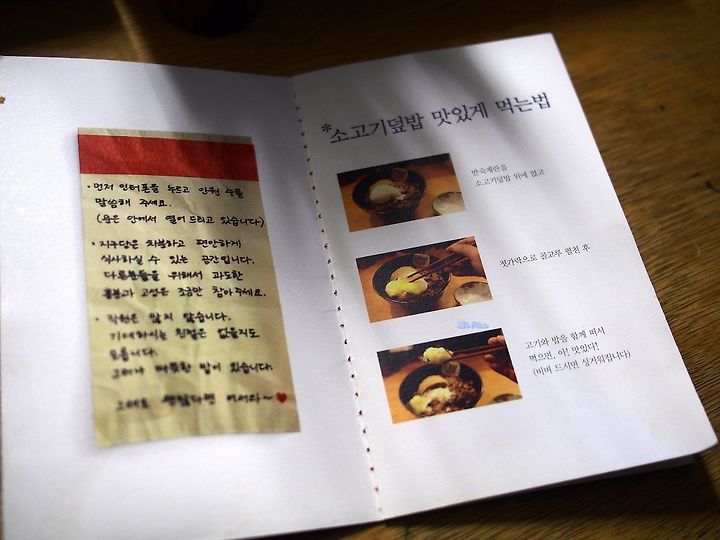 • 먼저 인터폰을 누르고 인원 수를
말씀해 주세요.
(문은 안에서 열어 드리고 있습니다)
• 지구당은 차분하고 편안하게
식사하실 수 있는 공간입니다.
다른분들을 위해서 과도한
흥분과 고성은 조금만 참아주세요.
• 직원은 많지 않습니다.
기대하시는 친절은 없을지도
모릅니다.
그러나 따뜻한 밥이 있습니다.
그래도 괜찮다면 어서와~ ♥
*소고기덮밥 맛있게 먹는법
반숙계란을
소고기덮밥 위에 얹고
젓가락으로 골고루 펼친 후
고기와 밥을 함께 떠서
먹으면, 아! 맛있다!
(비벼 드시면 싱거워집니다)